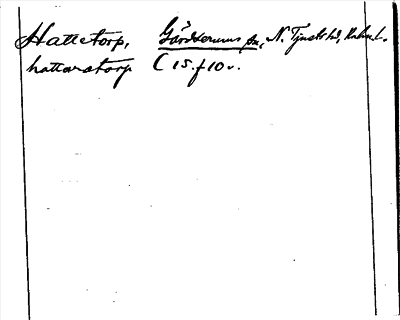 Hattetorp, Gärdserums sn, N. Tjusts hd, Kalm. l.
hattaratorp C 15. f 10 v.